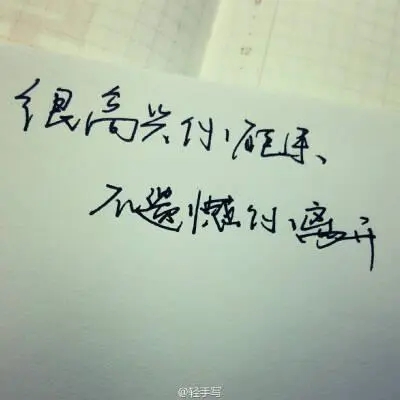 很高兴你能来、
不遗憾你离开
@轻手写